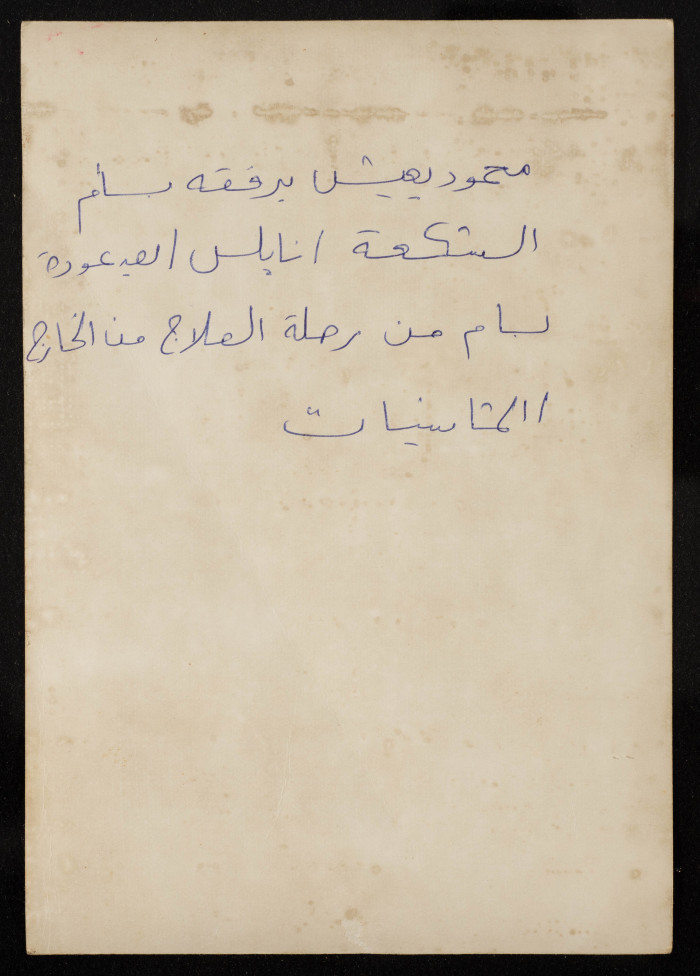 محمود يعيش برفقه بسام
الشكعة / نابلس / بعيد عودة
بسام من رحلة العلاج من الخارج
/ الثمانينيات